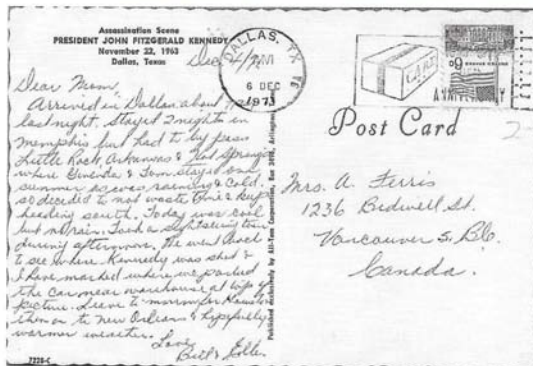 Assassination Scene
PRESIDENT JOHN FITZGERALD KENNEDY
November 22, 1963
Dallas, Texas
Dec
Dear Mom,
Arrived in Dallas about
last night. Stayed 2 nights in
Memphis but had to by pass
Little Rock, Arkansas & Hot Springs
where & Tom stayed one
summer as was raining & cold.
so decided to not waste time & keep
heading south. Today was cool
but no rain. Took a sightseeing tour
during afternoon. We went back
to see where Kennedy was shot &
I have marked where we parked
the car near warehouse at top of
picture. Leave to morrow for Houston
then on to New Orleans & hopefully
warmer weather.
Love
Bill &
7228-C
Published exclusively by All-Tom Corporation, Box 3010, Arlington
DALLAS, TX
PM
6 DEC
1973
Post Card
Mrs. A. Ferris
1236 Bidwell St.
Vancouver 5, B.C.
Canada.